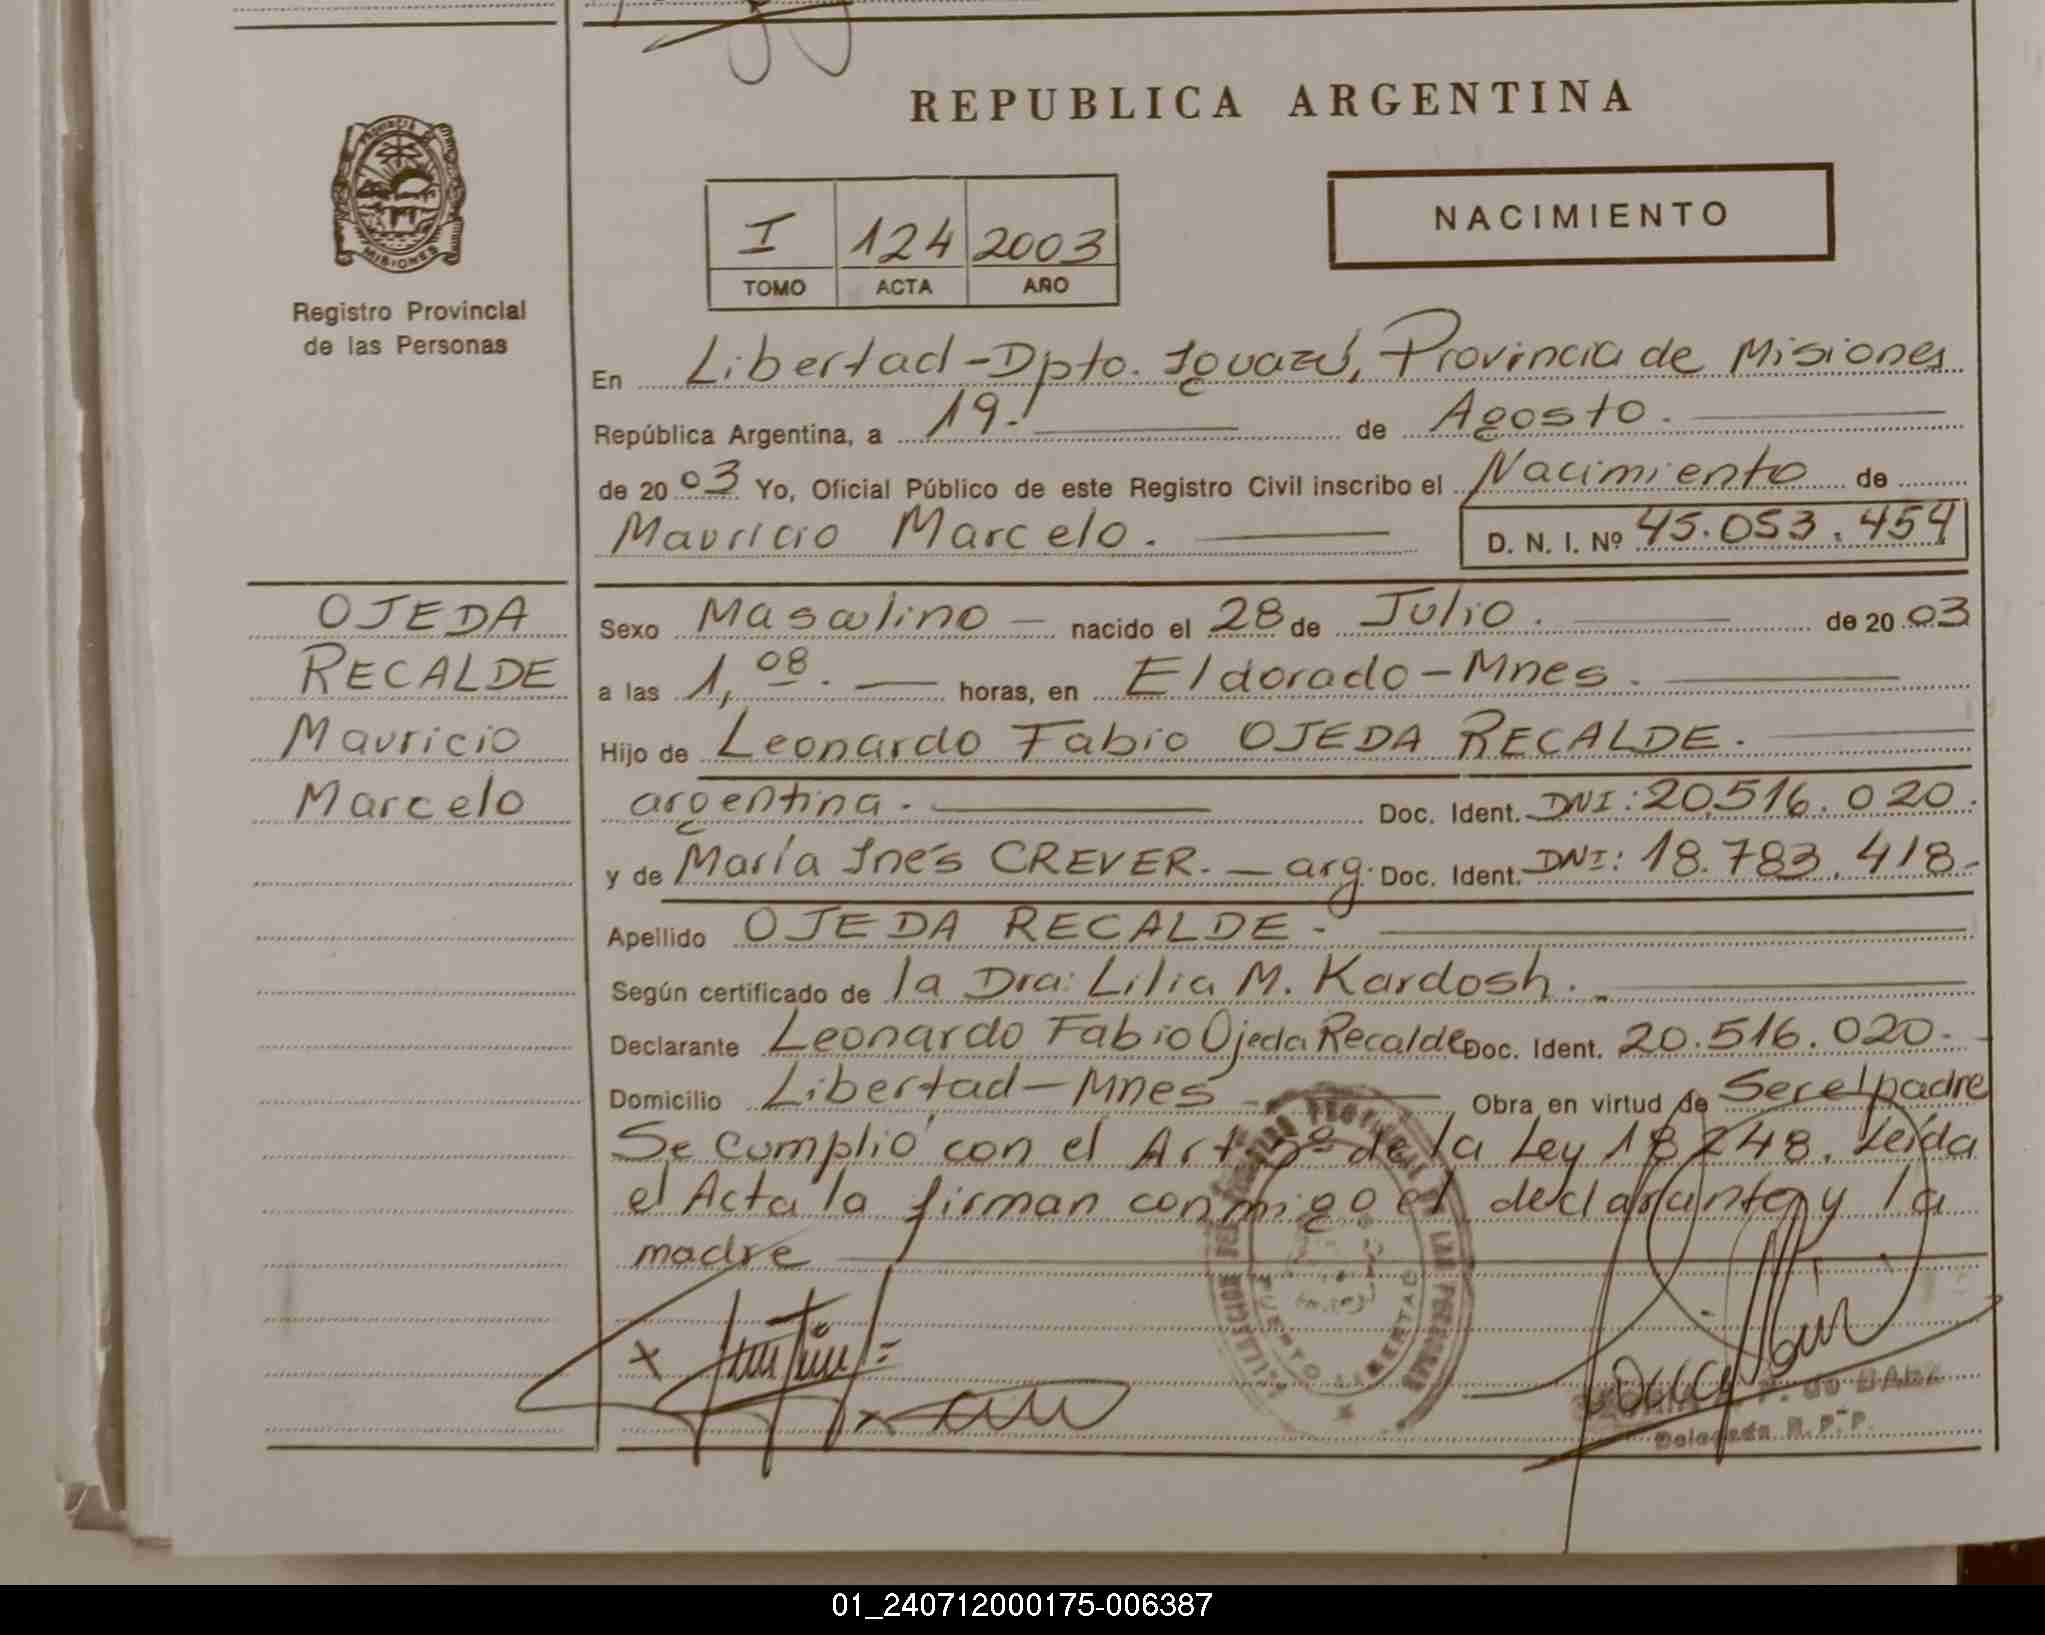 REPUBLICA ARGENTINA
PROVINCIA DE
MISIONES
Registro Provincial
de las Personas
I 124 2003
TOMO ACTA AÑO
NACIMIENTO
En Libertad - Dpto. Iguazú, Provincia de Misiones
República Argentina, a 19.- de Agosto.
de 2003 Yo, Oficial Público de este Registro Civil inscribo el Nacimiento de
Mauricio Marcelo. D. N. I. Nº 45.053.454
OJEDA
RECALDE
Mauricio
Marcelo
Sexo Masculino - nacido el 28 de Julio. de 2003
a las 1,08. horas, en Eldorado - Mnes.
Hijo de Leonardo Fabio OJEDA RECALDE.
argentina. Doc. Ident. DNI: 20.516.020.
y de María Inés CREVER. - arg. Doc. Ident. DNI: 18.783.418-
Apellido OJEDA RECALDE -
Según certificado de la Dra: Lilia M. Kardosh.
Declarante Leonardo Fabio Ojeda Recalde Doc. Ident. 20.516.020.
Domicilio Libertad - Mnes - Obra en virtud de Ser el padre
Se cumplió con el Art de la Ley 18248. Leída
el Acta la firman conmigo el declarante y la
madre
PUERTO LIBERTAD
Delegada R. P. P.
01_240712000175-006387